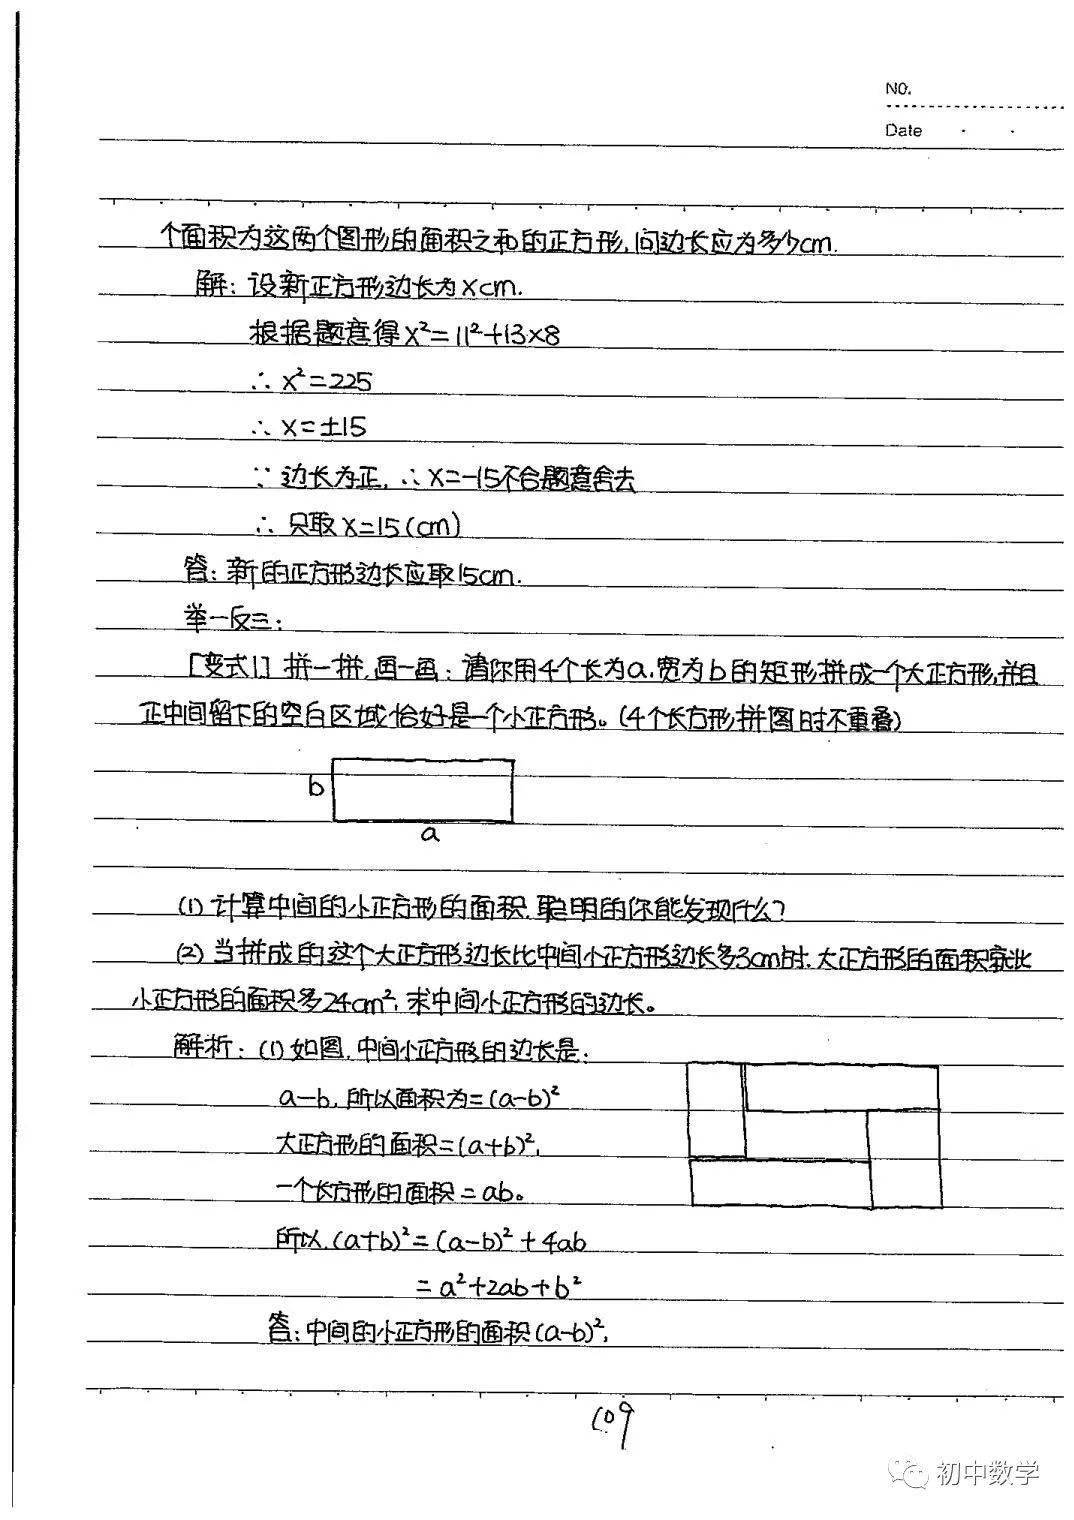 NO.
Date
个面积为这两个图形的面积之和的正方形,问边长应为多少cm.
解:设新正方形边长为xcm.
根据题意得x²=11²+13×8
∴ x²=225
∴ x=±15
∵ 边长为正,∴x=-15不合题意舍去
∴ 只取x=15(cm)
答:新的正方形边长应取15cm.
举一反三:
[变式1] 拼一拼,画一画:请你用4个长为a,宽为b的矩形拼成一个大正方形,并且
正中间留下的空白区域恰好是一个小正方形。(4个长方形拼图时不重叠)
b
a
(1)计算中间的小正方形的面积,聪明的你能发现什么?
(2)当拼成的这个大正方形边长比中间小正方形边长多3cm时,大正方形的面积就比
小正方形的面积多24cm²,求中间小正方形的边长。
解析:(1)如图,中间小正方形的边长是:
a-b,所以面积为=(a-b)²
大正方形的面积=(a+b)²,
一个长方形的面积=ab。
所以,(a+b)²=(a-b)²+4ab
=a²+2ab+b²
答:中间的小正方形的面积(a-b)²,
109
初中数学